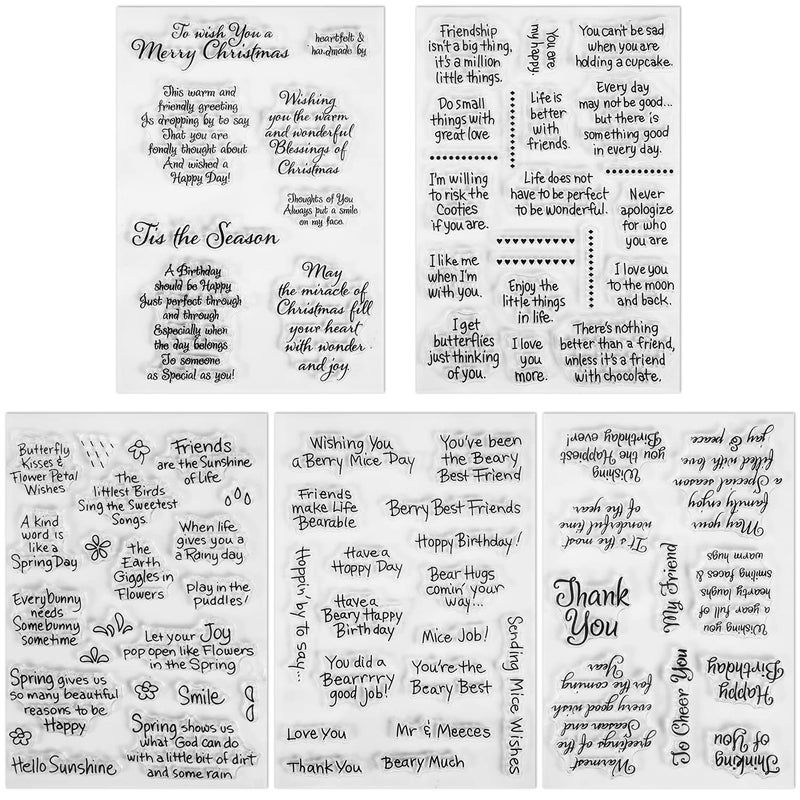 To wish You a
Merry Christmas
heartfelt &
handmade by
This warm and
friendly greeting
Is dropping by to say
That you are
fondly thought about
And wished a
Happy Day!
Wishing
you the warm
and wonderful
Blessings of
Christmas
Thoughts of You
Always put a smile
on my face
Tis the Season
A Birthday
should be Happy
Just perfect through
and through
Especially when
the day belongs
To someone
as Special as you!
May
the miracle of
Christmas fill
your heart
with wonder
and joy
Friendship
isn't a big thing,
it's a million
little things.
You are
my happy.
You can't be sad
when you are
holding a cupcake.
Do small
things with
great love
Life is
better
with
friends.
Every day
may not be good...
but there is
something good
in every day.
I'm willing
to risk the
Cooties
if you are.
Life does not
have to be perfect
to be wonderful.
Never
apologize
for who
you are
I like me
when I'm
with you.
Enjoy the
little things
in life.
I love you
to the moon
and back.
I get
butterflies
just thinking
of you.
I love
you
more.
There's nothing
better than a friend,
unless it's a friend
with chocolate.
Butterfly
Kisses &
Flower Petal
Wishes
Friends
are the Sunshine
of Life
The
littlest Birds
Sing the Sweetest
Songs.
A Kind
word is
like a
Spring Day
When life
gives you a
a Rainy day
the
Earth
Giggles in
Flowers
play in the
puddles!
Everybunny
needs
Somebunny
sometime
Let your Joy
pop open like Flowers
in the Spring
Spring gives us
so many beautiful
reasons to be
Happy
Smile
Spring shows us
what God can do
with a little bit of dirt
and some rain
Hello Sunshine
Wishing You
a Berry Mice Day
You've been
the Beary
Best Friend
Friends
make Life
Bearable
Berry Best Friends
Hoppy Birthday!
Hoppin' by to say...
Have a
Hoppy Day
Bear Hugs
comin' your
way...
Have a
Beary Happy
Birthday
Mice Job!
Sending Mice Wishes
You did a
Bearrrry
good job!
You're the
Beary Best
Love You
Mr & Meeces
Thank You
Beary Much
Wishing
you the Happiest
Birthday ever!
May your
family enjoy
a Special season
filled with love
joy & peace
It's the most
wonderful time
of the year
Thank
You
My Friend
Wishing you
a year full of
hearty laughs
smiling faces &
warm hugs
Warmest
greetings of the
Season and
every good wish
for the coming
Year
To Cheer You
Happy
Birthday
Thinking
of You